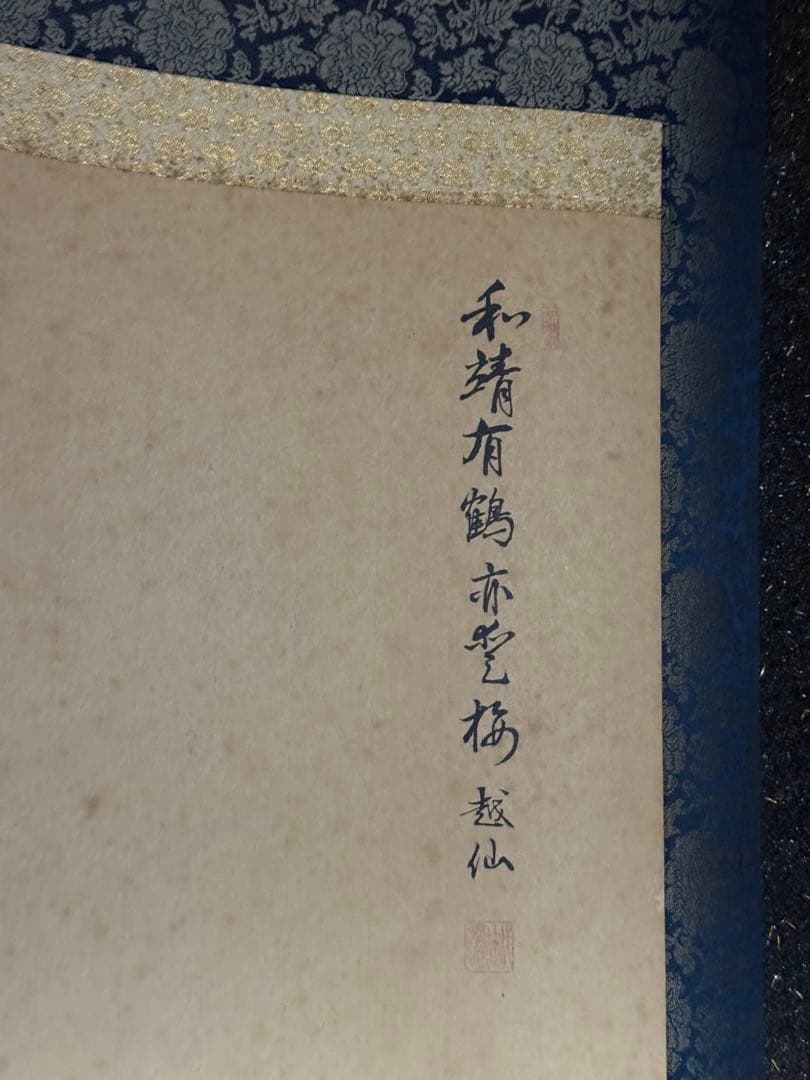 和靖有鶴亦愛梅 越仙